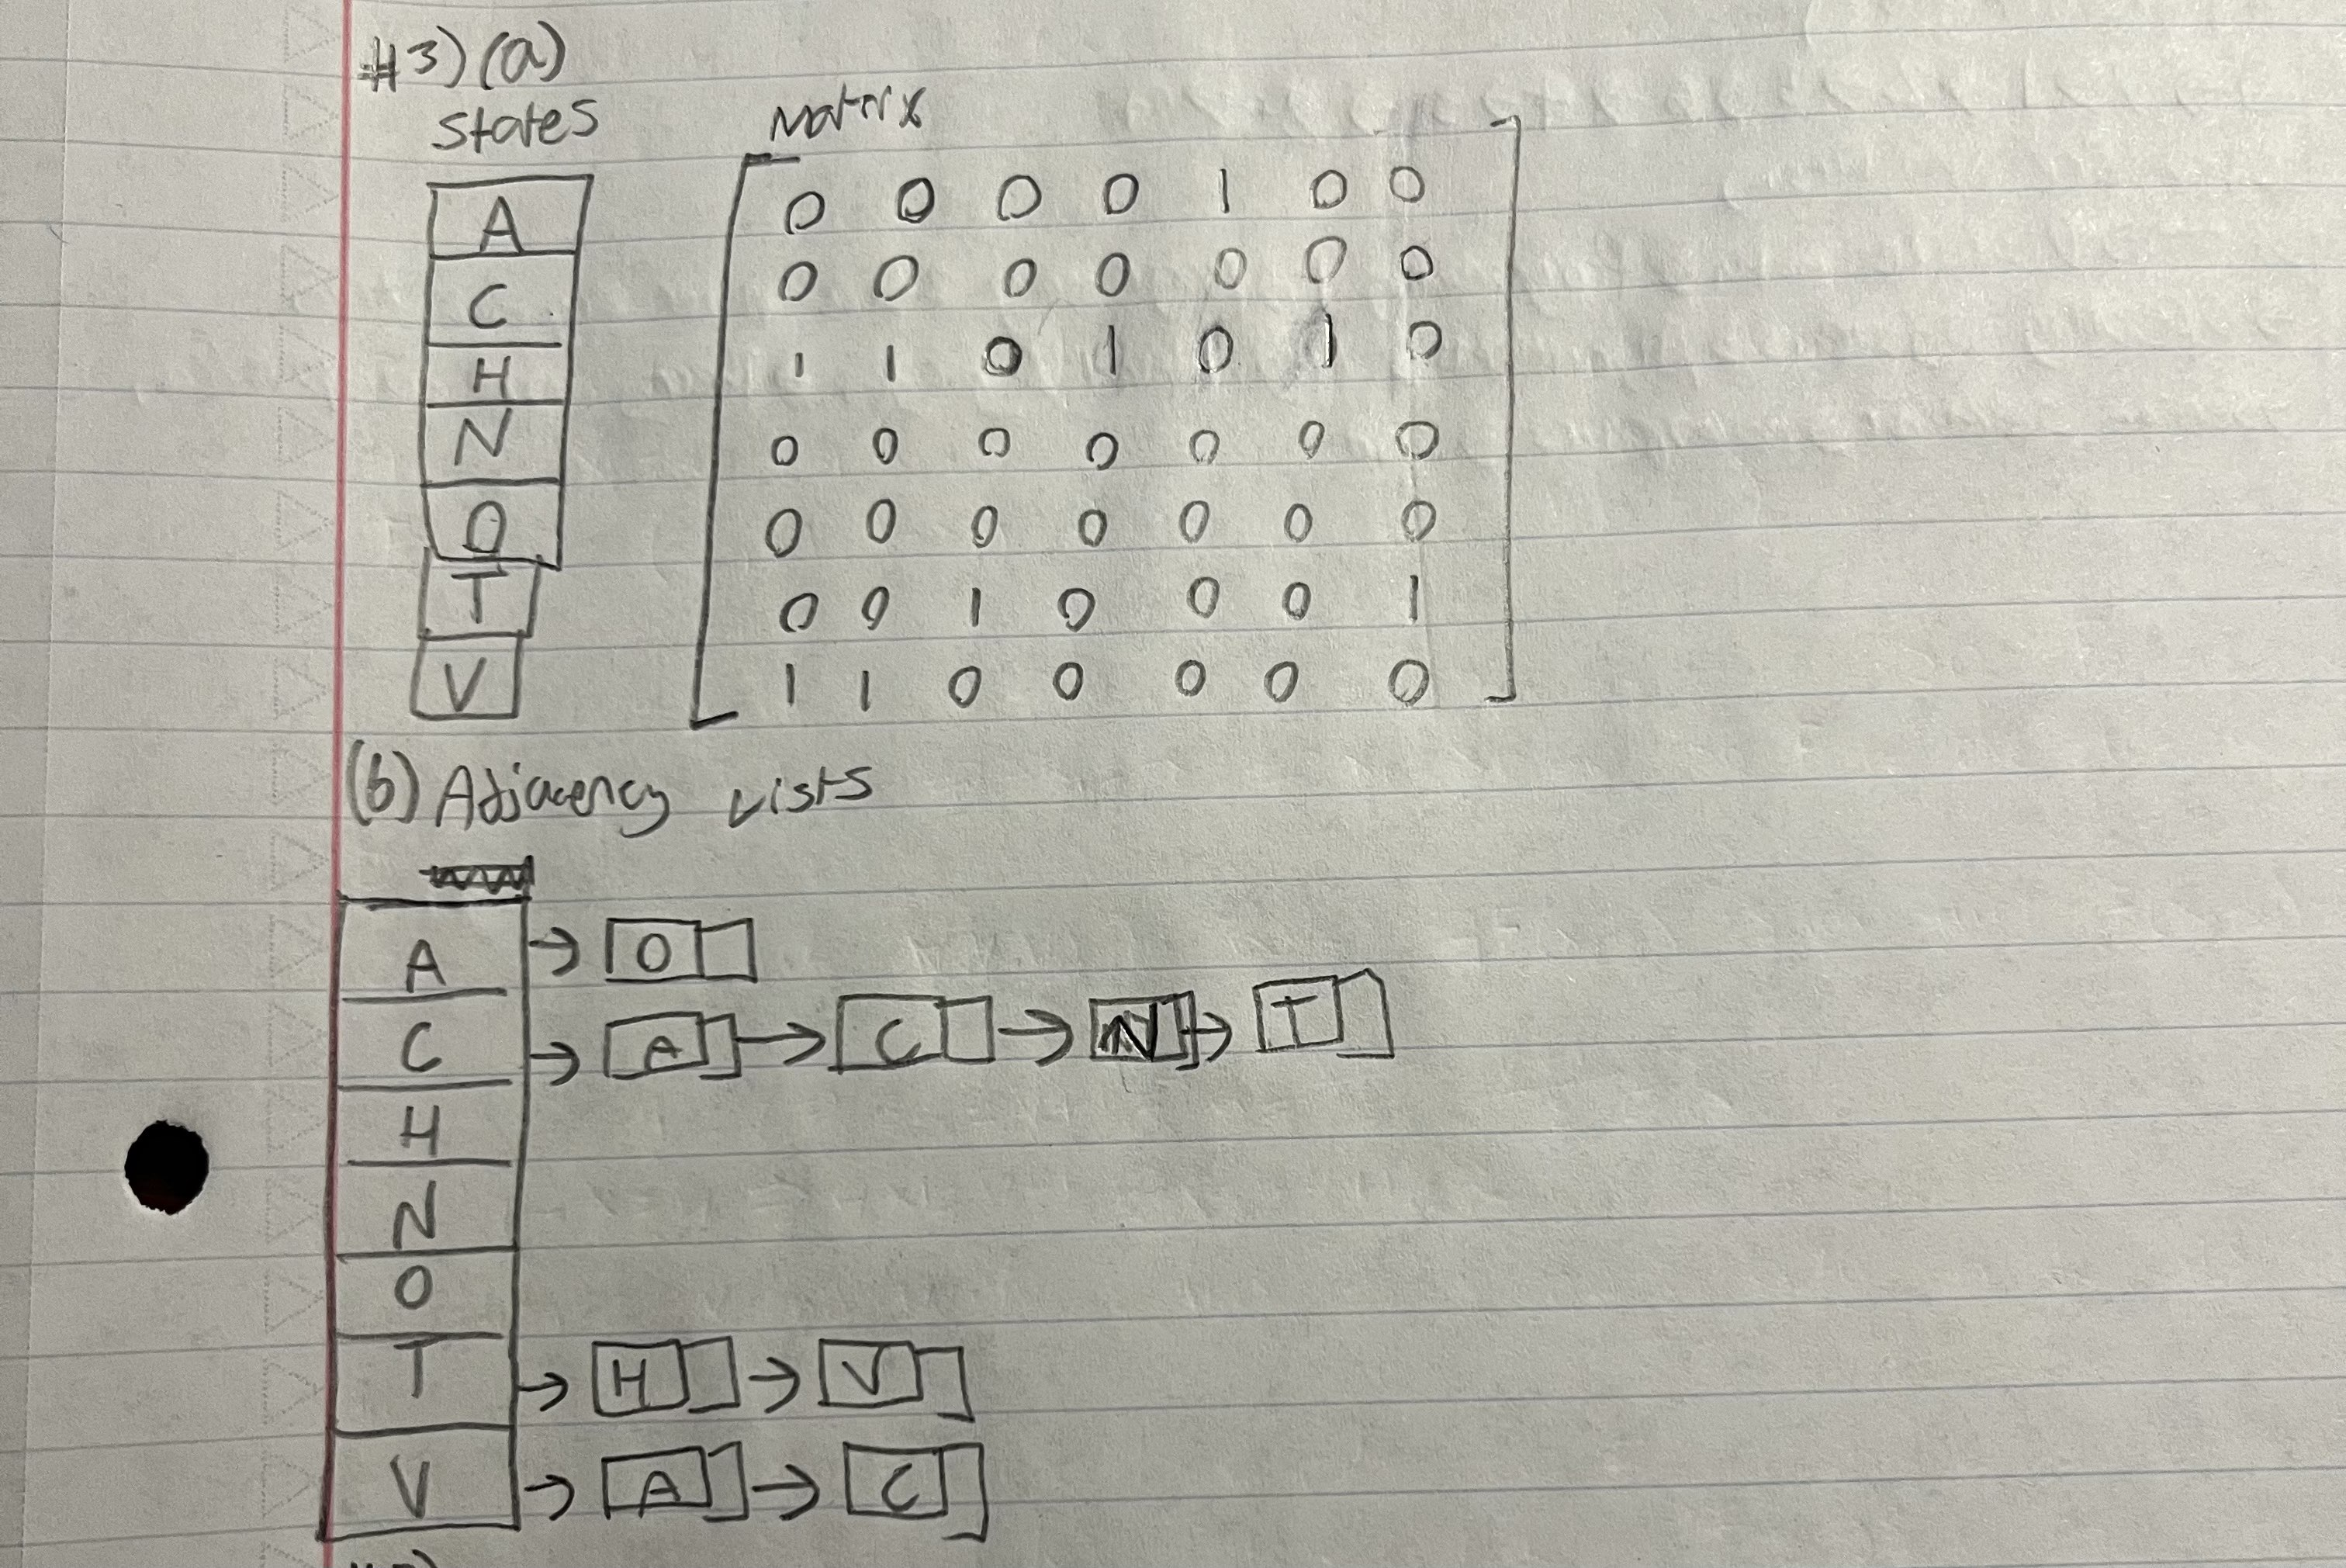 #3) (a)
States Matrix
A 0 0 0 0 1 0 0
C 0 0 0 0 0 0 0
H 1 1 0 1 0 1 0
N 0 0 0 0 0 0 0
O 0 0 0 0 0 0 0
T 0 0 1 0 0 0 1
V 1 1 0 0 0 0 0
(b) Adjacency Lists
A → O
C → A → C → N → T
H
N
O
T → H → V
V → A → C